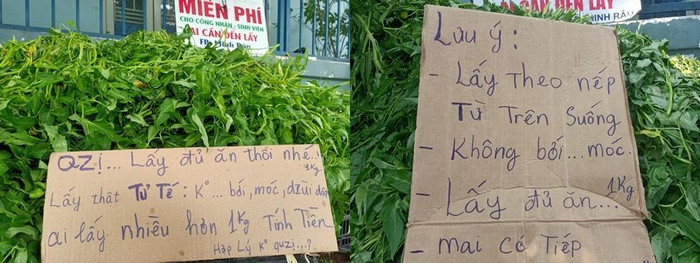 MIỄN PHÍ
CHO CÔNG NHÂN - SINH VIÊN
AI CẦN ĐẾN LẤY
QZỊ... Lấy đủ ăn thôi nhé...
1Kg
Lấy thật Tử Tế: K°... bới, móc, dzùi dập
ai lấy nhiều hơn 1Kg Tính Tiền
Hợp Lý K° QUZỊ...?
AI CẦN ĐẾN LẤY
MINH RÂU
Lưu ý:
- Lấy Theo nếp
Từ Trên Xuống
- Không bới... móc.
- Lấy đủ ăn... 1Kg
- Mai có Tiếp